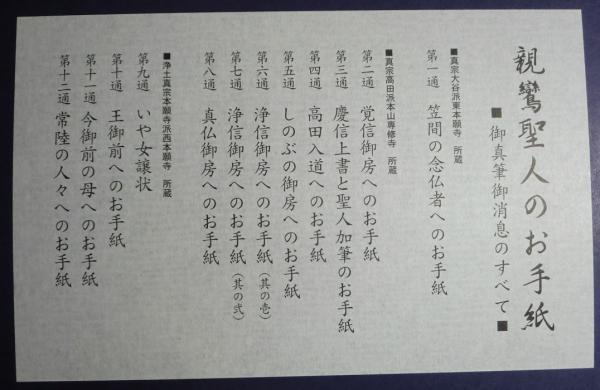 親鸞聖人のお手紙
■御真筆御消息のすべて■
■真宗大谷派東本願寺 所蔵
第一通 笠間の念仏者へのお手紙
■真宗高田派本山専修寺 所蔵
第二通 覚信御房へのお手紙
第三通 慶信上書と聖人加筆のお手紙
第四通 高田入道へのお手紙
第五通 しのぶの御房へのお手紙
第六通 浄信御房へのお手紙(其の壱)
第七通 浄信御房へのお手紙(其の弐)
第八通 真仏御房へのお手紙
■浄土真宗本願寺派西本願寺 所蔵
第九通 いや女譲状
第十通 王御前へのお手紙
第十一通 今御前の母へのお手紙
第十二通 常陸の人々へのお手紙